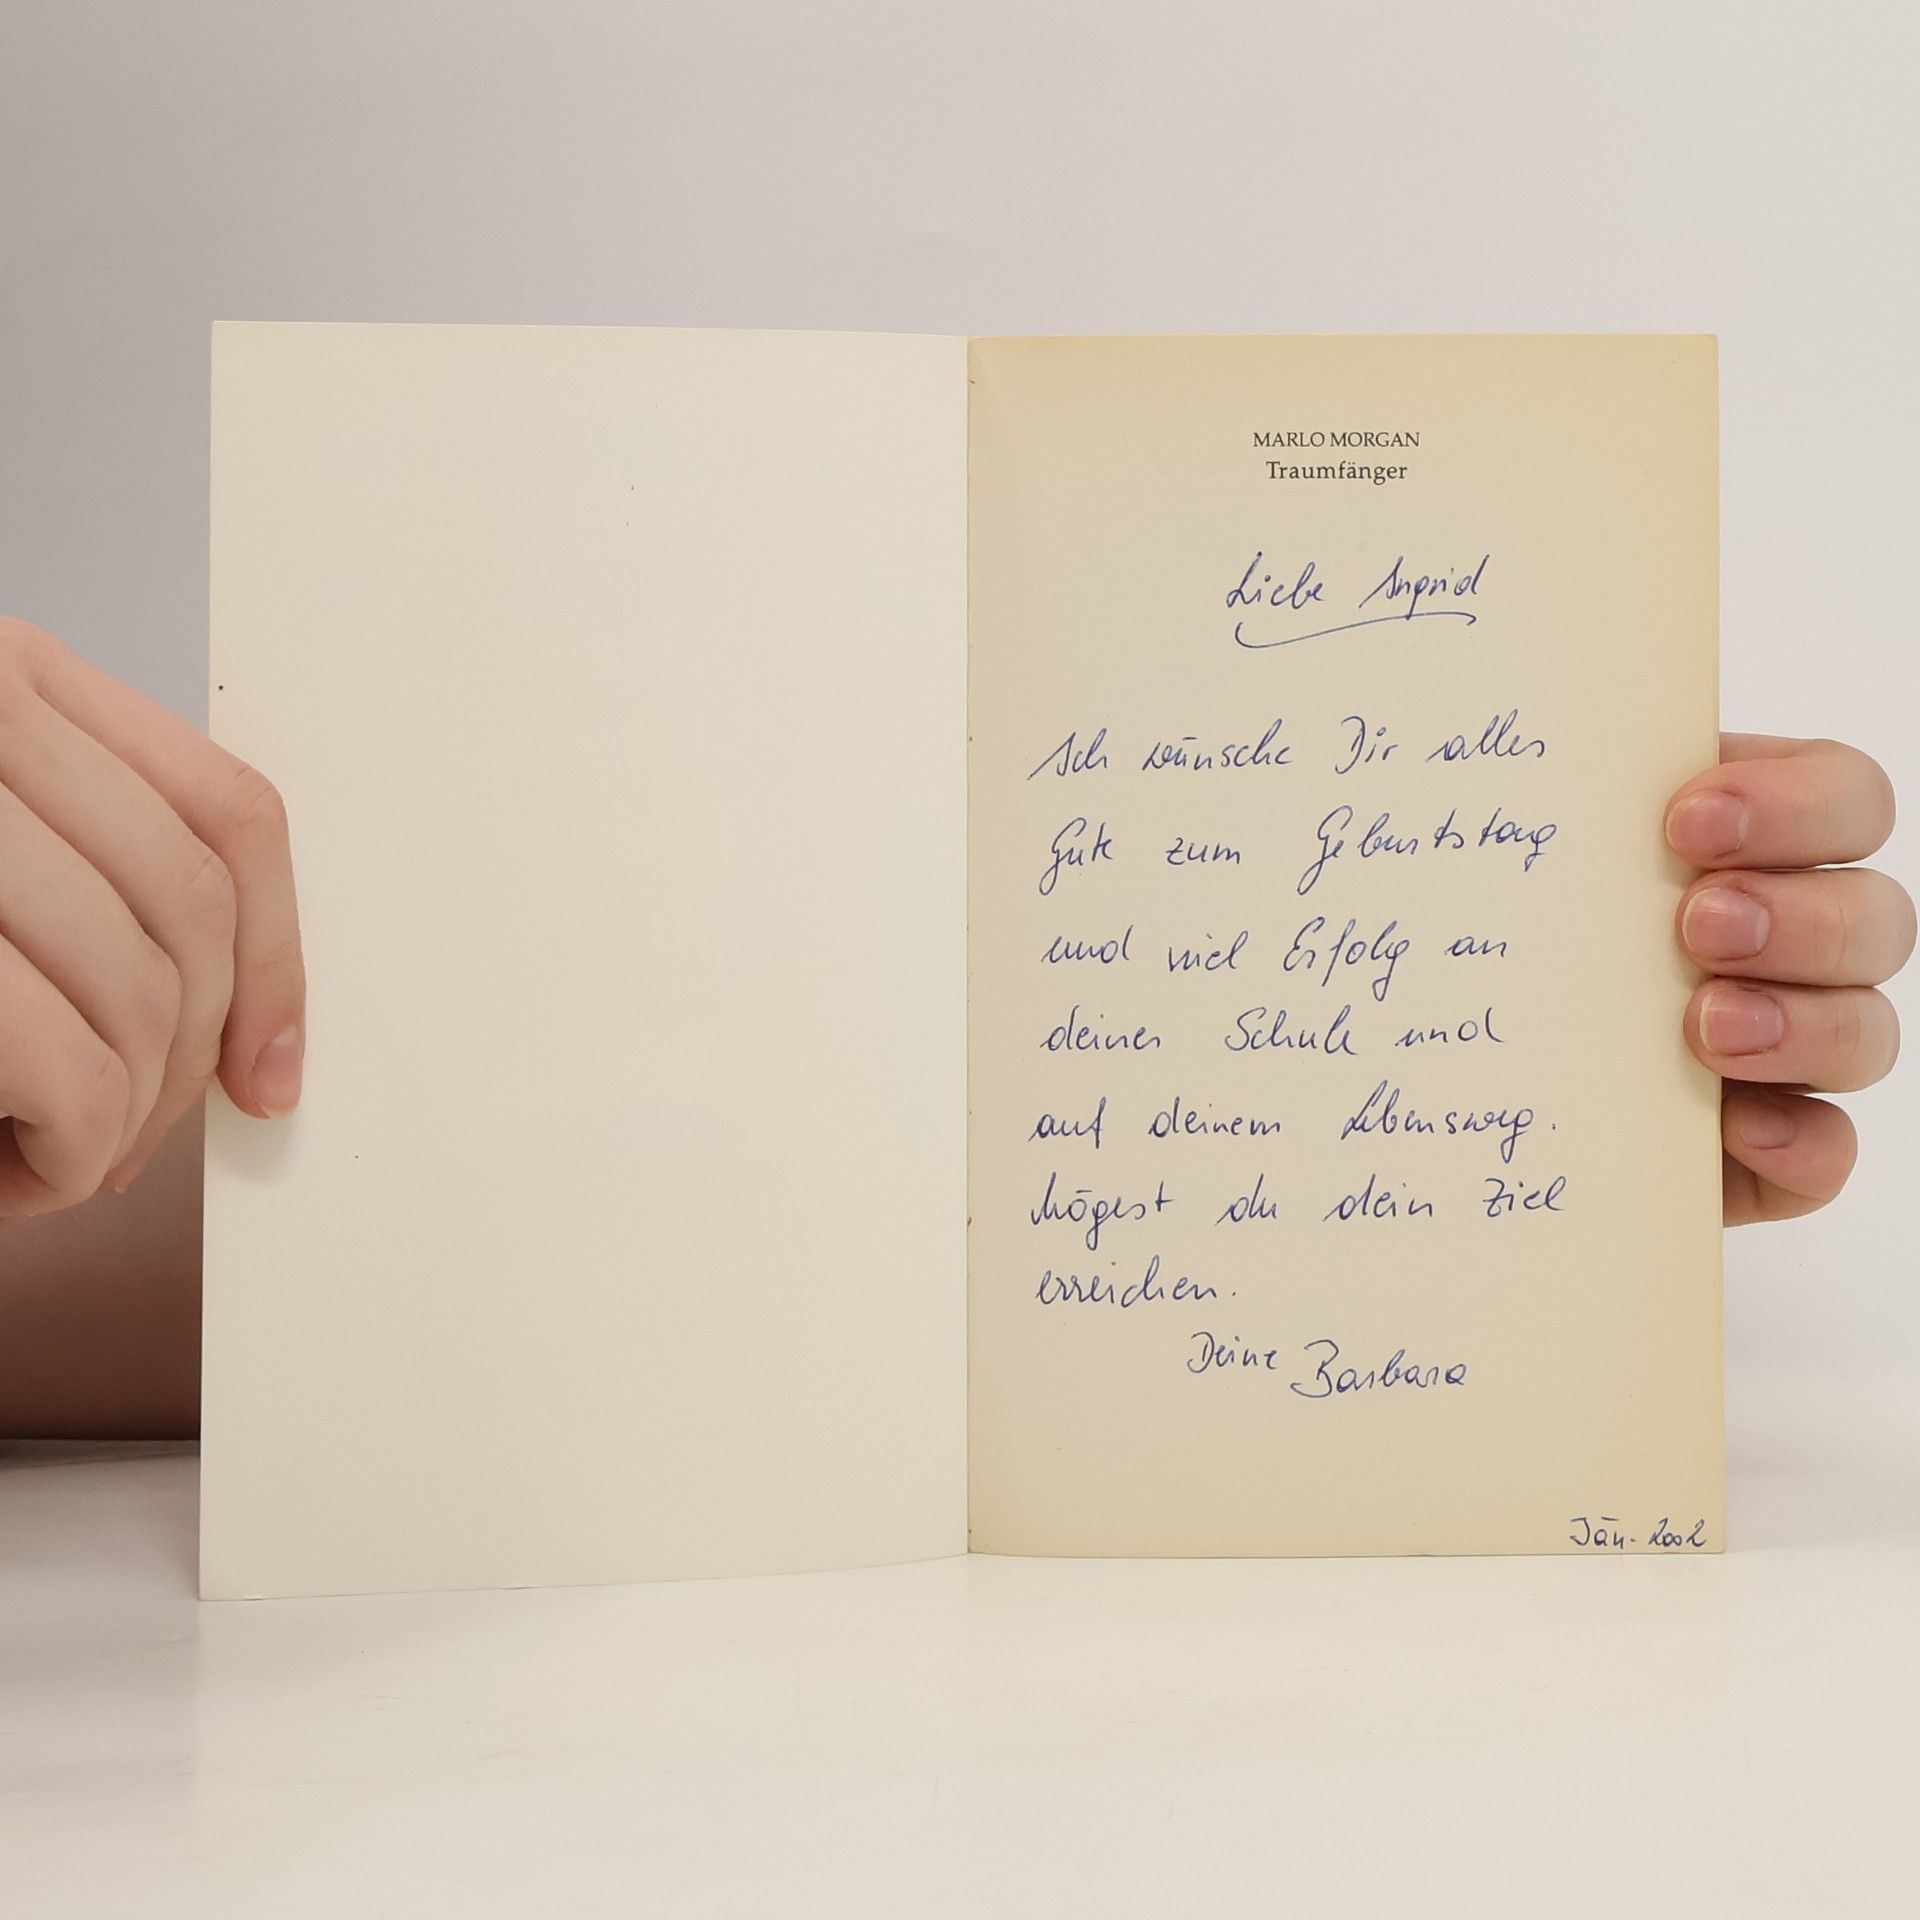 MARLO MORGAN
Traumfänger
Liebe Ingrid
Ich wünsche Dir alles
Gute zum Geburtstag
und viel Erfolg an
deiner Schule und
auf deinem Lebensweg.
Mögest du dein Ziel
erreichen.
Deine Barbara
Jän. 2002